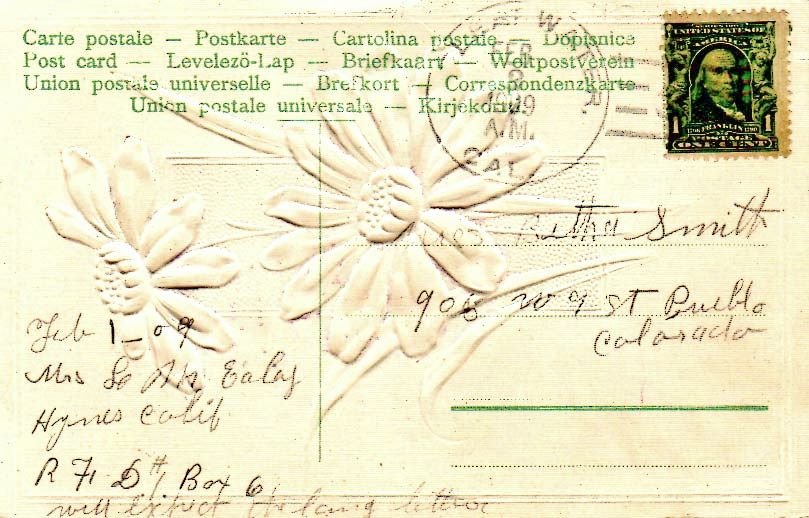 Carte postale — Postkarte — Cartolina postale — Dopisnice
Post card — Levelezö-Lap — Briefkaart — Weltpostverein
Union postale universelle — Brefkort — Correspondenzkarte
Union postale universale — Kirjekortti
FEB
2
1909
A.M.
CAL.
SERIES 1902
UNITED STATES OF
AMERICA
1 FRANKLIN 1
1706 1790
POSTAGE
ONE CENT
Miss Bertha Smith
905 W 9 St Pueblo
Colorado
Feb 1-09
Mrs
Hynes Calif
R F D #1 Box 6
will expect the long letter